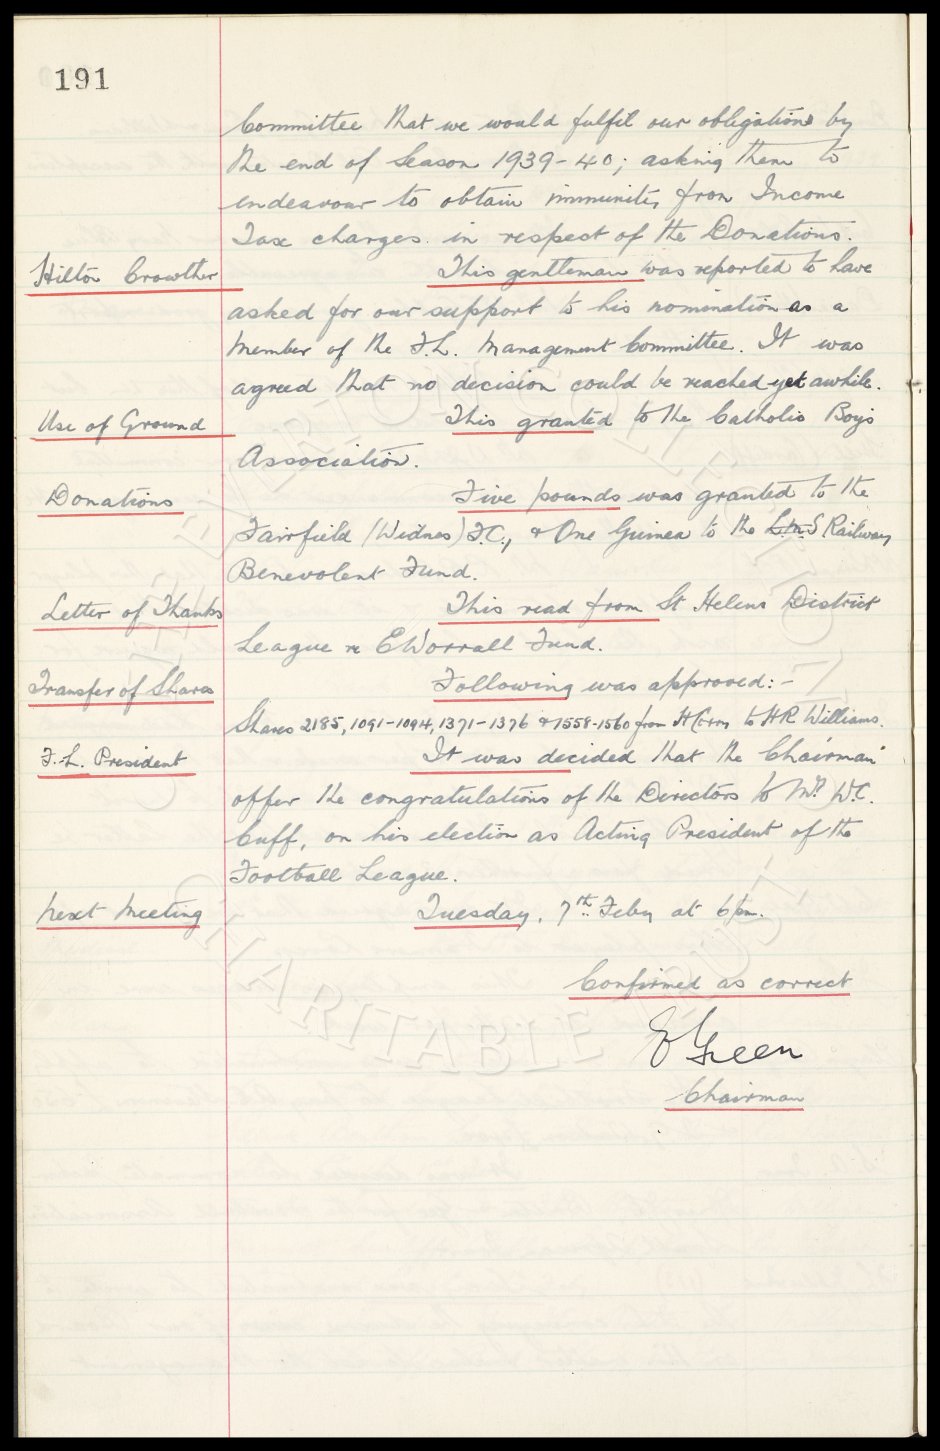 191
Committee that we would fulfil our obligations by
the end of Season 1939-40; asking them to
endeavour to obtain immunity from Income
Tax charges in respect of the Donations.
Hilton Crowther This gentleman was reported to have
asked for our support to his nomination as a
Member of the F.L. Management Committee. It was
agreed that no decision could be reached yet awhile.
Use of Ground This granted to the Catholic Boys
Association.
Donations Five pounds was granted to the
Fairfield (Widnes) F.C., & One Guinea to the L.M.S Railway
Benevolent Fund.
Letter of Thanks This read from St Helens District
League re E Worrall Fund.
Transfer of Shares Following was approved:-
Shares 2185, 1091-1094, 1371-1376 & 1558-1560 from H Corry to H R Williams.
F.L. President It was decided that the Chairman
offer the congratulations of the Directors to Mr W.C.
Cuff, on his election as Acting President of the
Football League.
Next Meeting Tuesday, 7th Feby at 6 pm.
Confirmed as correct
E Green
Chairman
EVERTON COLLECTION
CHARITABLE TRUST